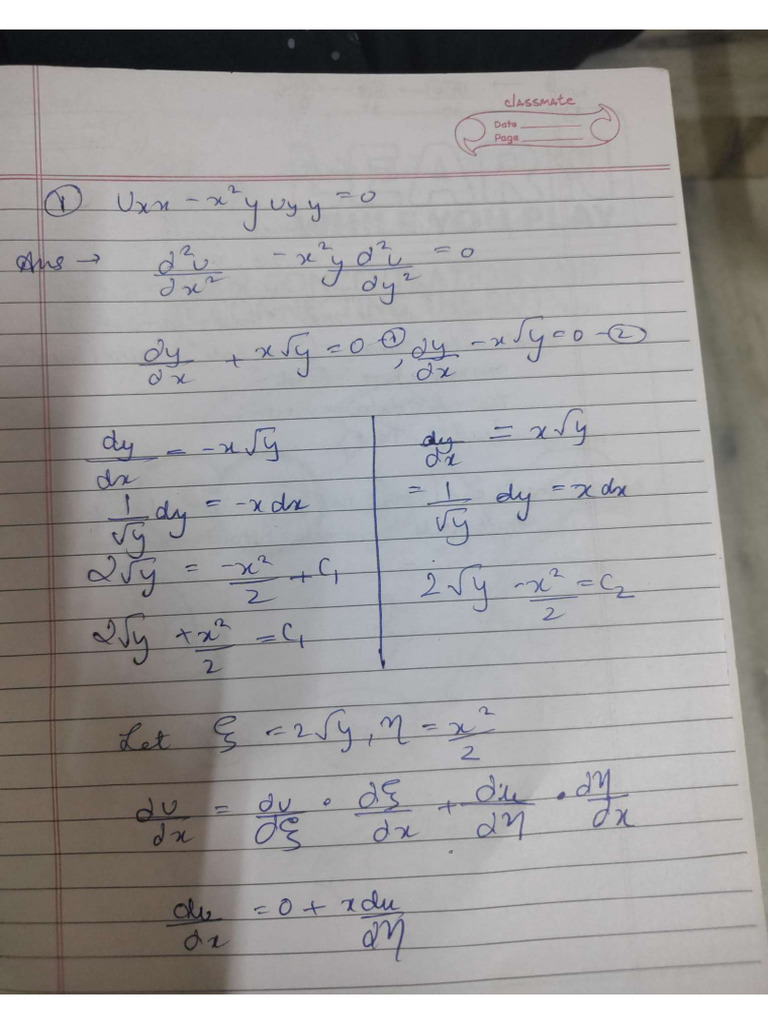 classmate
Date
Page
① Uxx - x²y Uyy = 0
Ans → d²u/dx² - x²y d²u/dy² = 0
dy/dx + x√y = 0 -①, dy/dx - x√y = 0 -②
dy/dx = -x√y
1/√y dy = -x dx
2√y = -x²/2 + C₁
2√y + x²/2 = C₁
dy/dx = x√y
= 1/√y dy = x dx
2√y - x²/2 = C₂
Let ξ = 2√y, η = x²/2
du/dx = du/dξ · dξ/dx + du/dη · dη/dx
du/dx = 0 + x du/dη